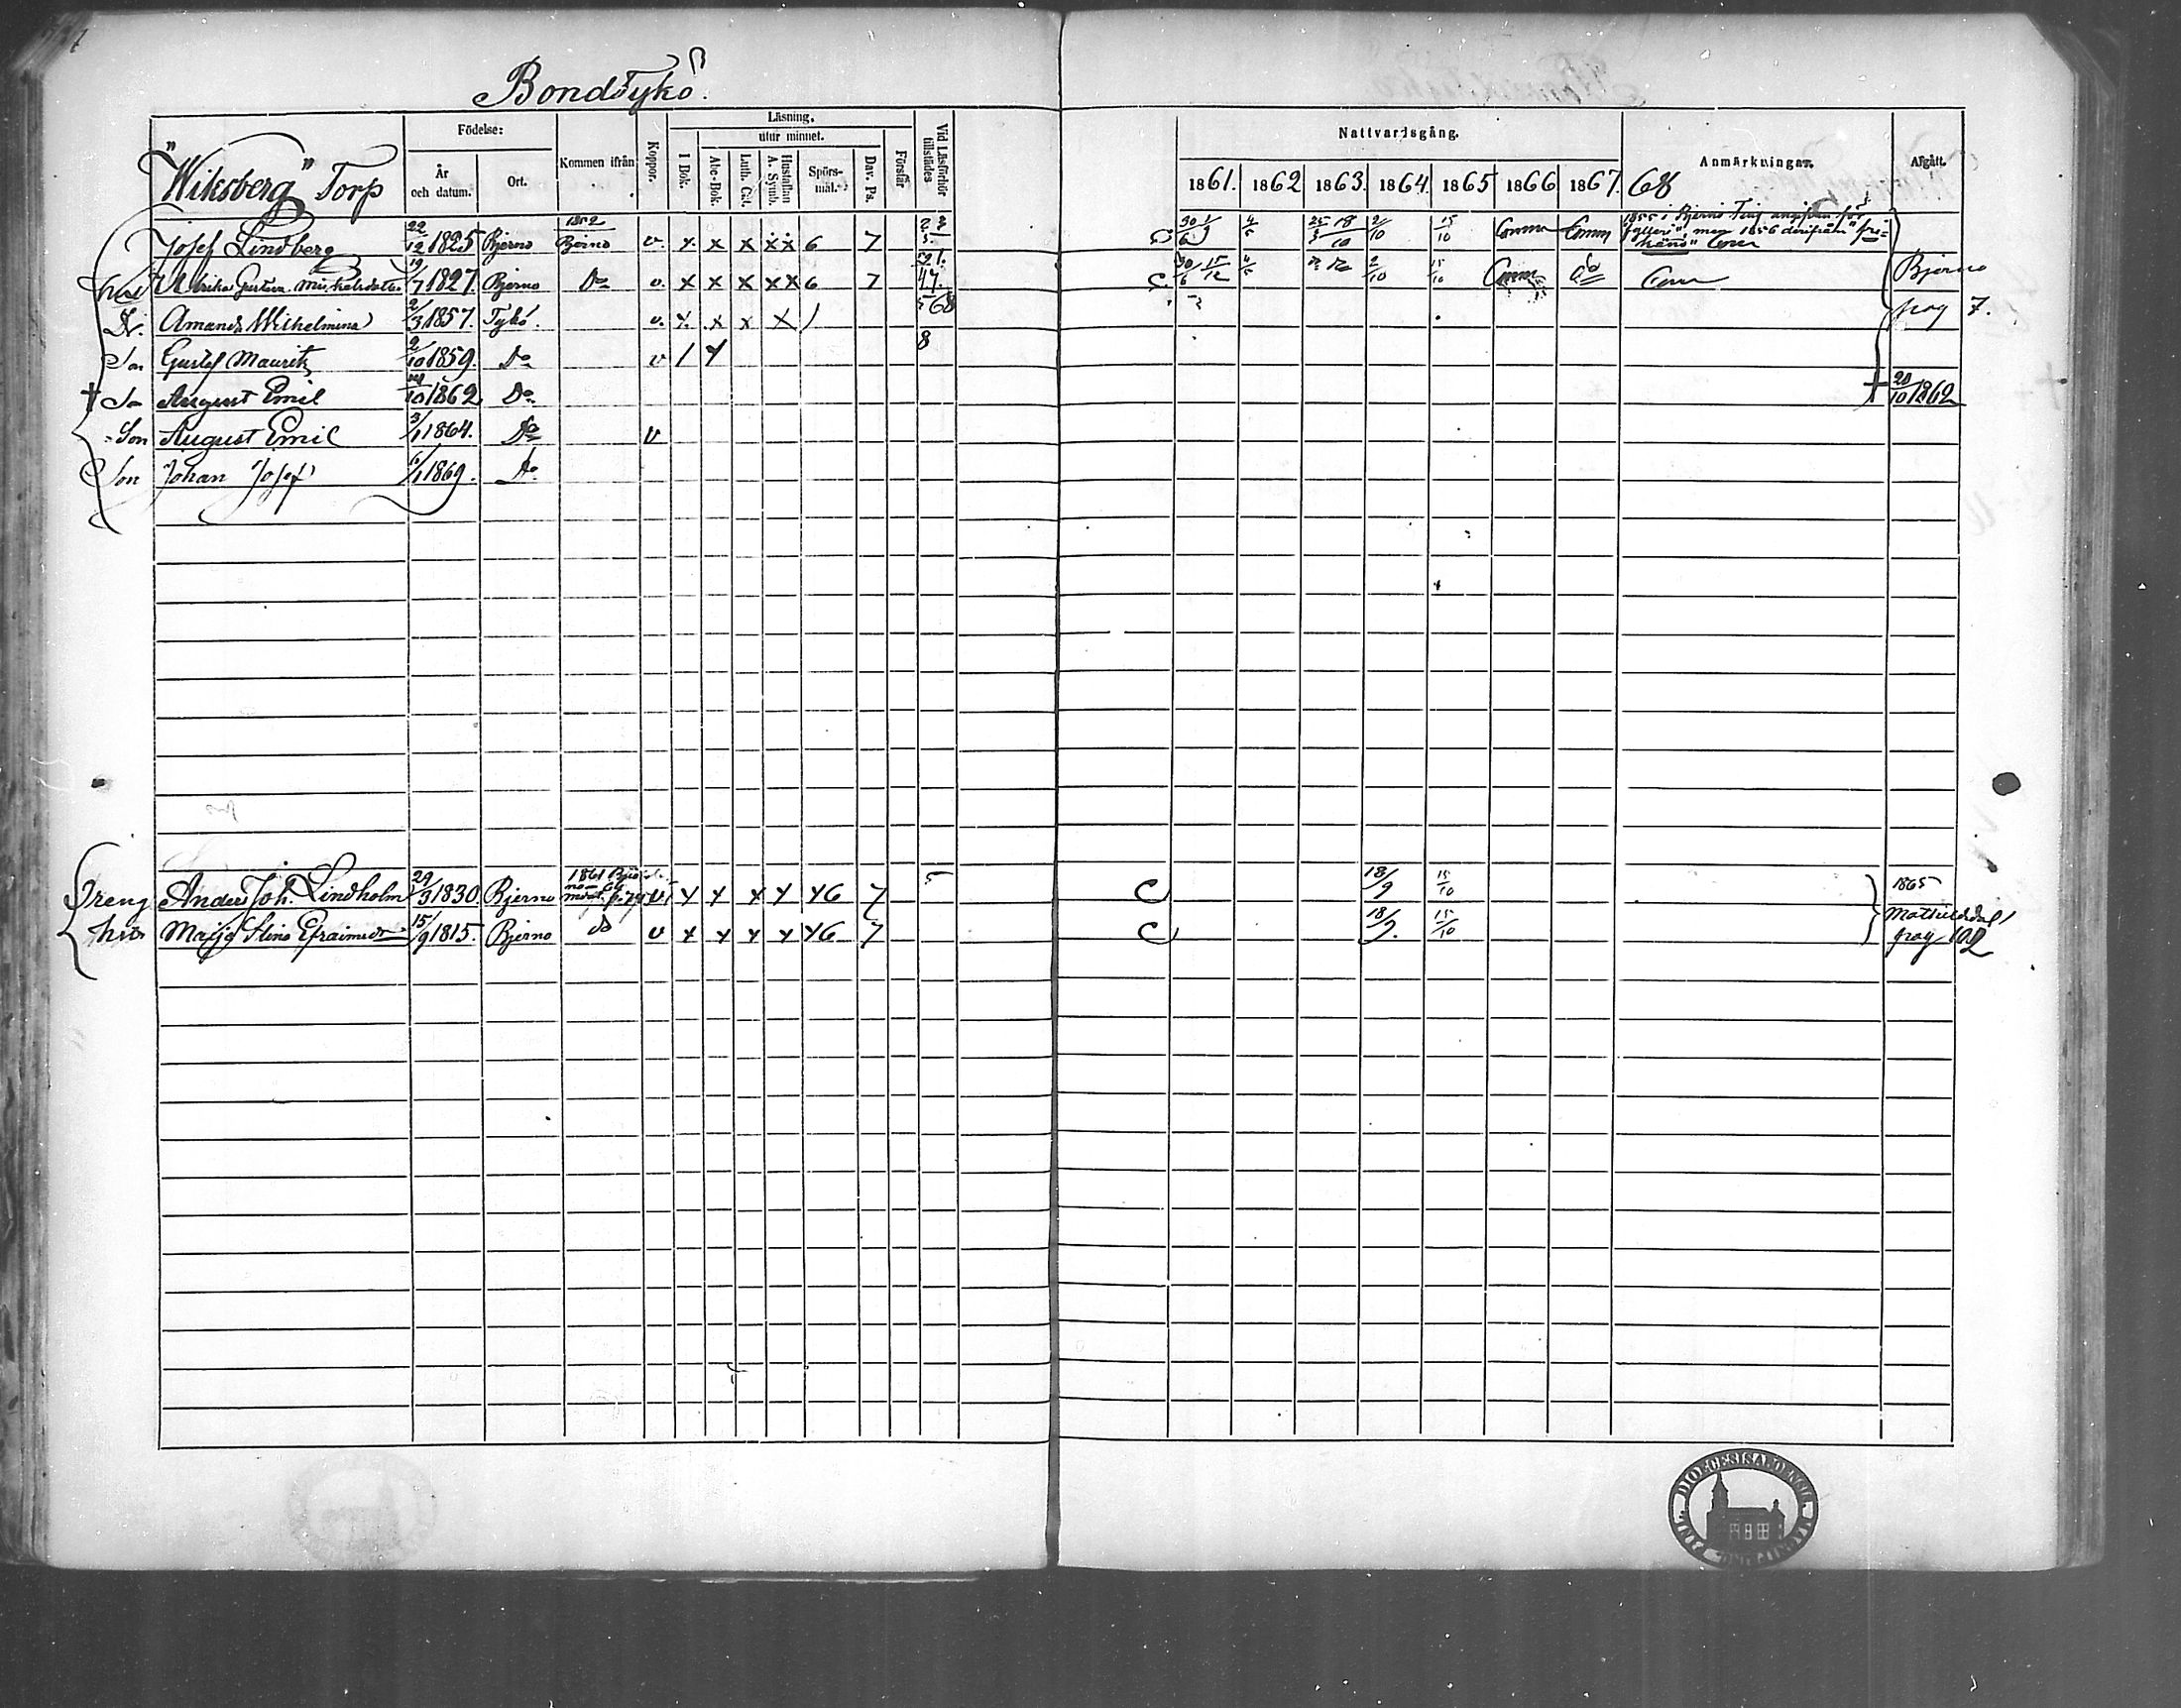 Bondtykö.
"Wiksberg" Torp
Födelse:
År och datum.
Ort.
Kommen ifrån
Koppor.
Läsning.
I Bok.
utur minnet.
Abc-Bok.
Luth. Cat.
Hustaflan A. Symb.
Spörsmål.
Dav. Ps.
Förstår
Vid Läsförhör tillstädes
Nattvardsgång.
1861. 1862 1863. 1864. 1865 1866 1867. 68
Anmärkningar.
Afgått.
Josef Lindberg 22/12 1825 Bjerno 1852 Bjerno v. x x x x x 6 7 4/5 25/3 18/10 2/10 15/10 Comm Comm 1855 i Bjerno Ting angifven för men 1856 derifrån
Ulrika Gustava 19/7 1827 Bjerno Do v. x x x x x 6 7 C 30/6 15/12 4/5 2/10 15/10 Comm do Bjerno
D. Amanda Wilhelmina 2/3 1857. Tykö. v. x x x x / pag 7.
Son Gustaf Maurits 2/10 1859. Do v / x 8
† So August Emil 10 1862 Do † 20/10 1862
Son August Emil 3/1 1864. Do v
Son Johan Josef 6/1 1869. Do
Dreng Anders Joh. Lindholm 29/3 1830. Bjerno 1861 v x x x x x 6 7 5 C 18/9 15/10 1865
hu Maija Stina Efraimsdr 15/9 1815. Bjerno do v x x x x x 6 7 C 18/9. 15/10 Mathildedal pag 102
DIOECESIS ABOENSIS